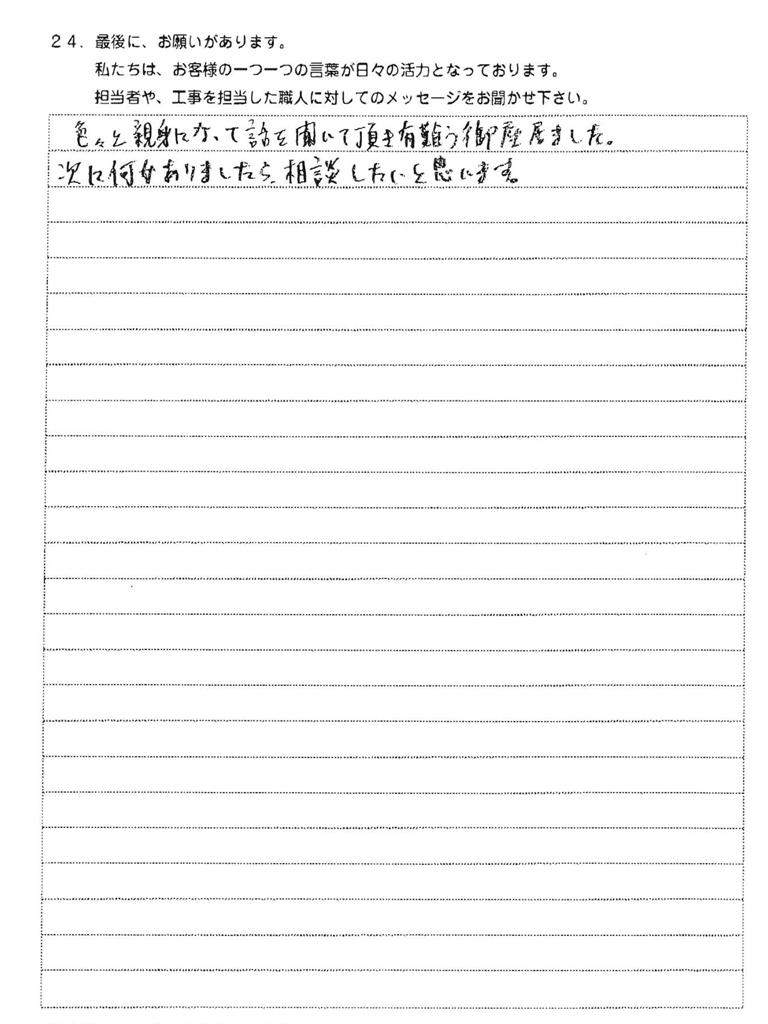 24. 最後に、お願いがあります。
私たちは、お客様の一つ一つの言葉が日々の活力となっております。
担当者や、工事を担当した職人に対してのメッセージをお聞かせ下さい。
色々と親身になって話を聞いて頂き有難う御座居ました。
次に何かありましたら、相談したいと思います。